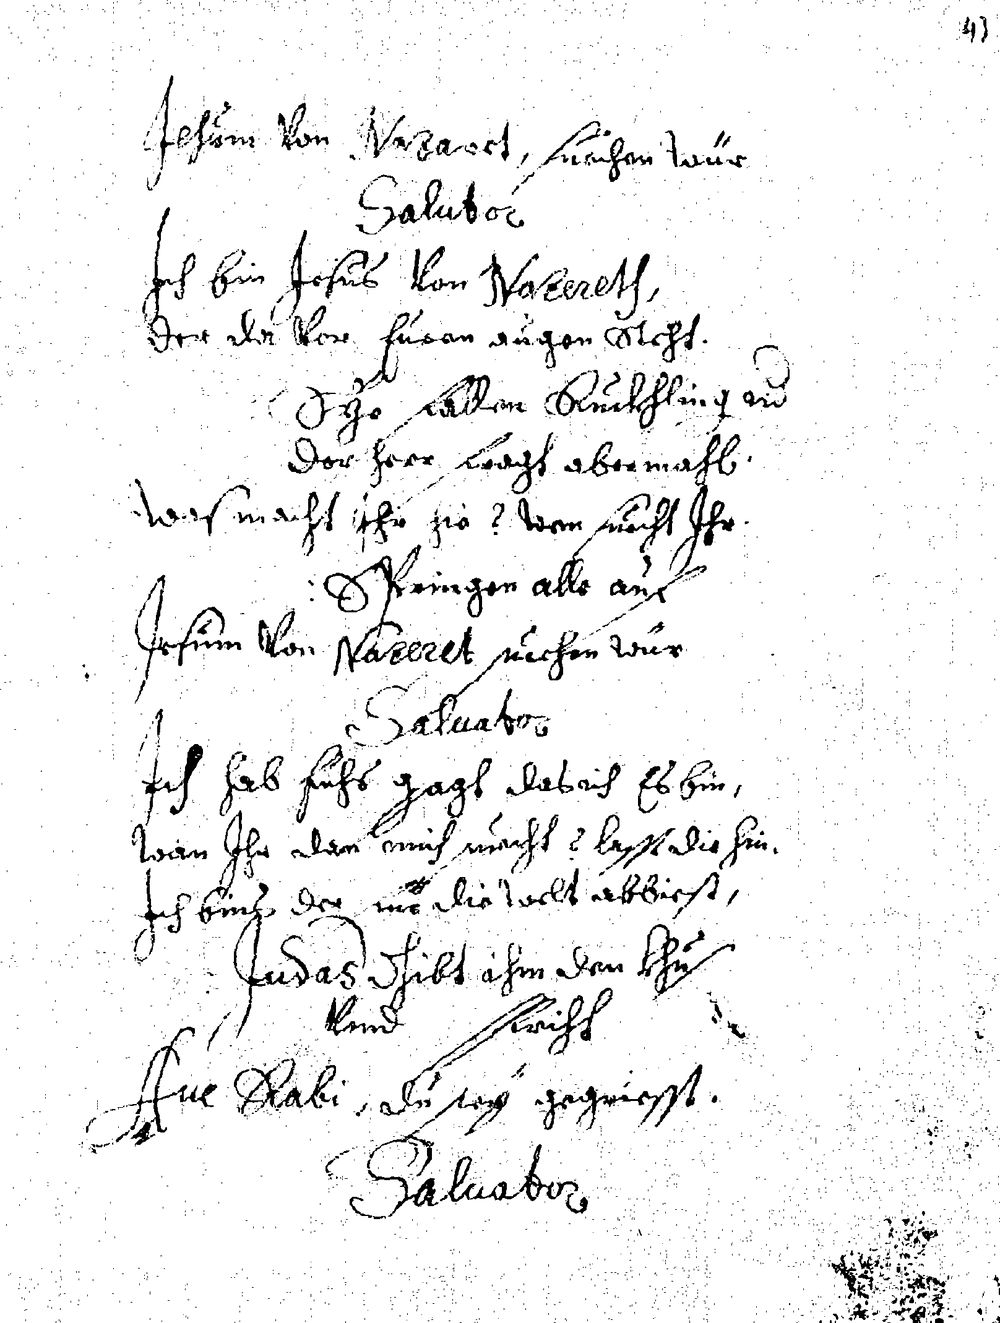 43
Jesum Von Nazaret, suechen wür
Saluator
Ich bin Jesus Von Nazereth,
der da Vor Eueren augen Steht.
Sye fallen Ruckhling
der herr fragt abermahl.
was macht ihr hie? wen suecht Ihr.
: Springen alle auf
Jesum Von Nazeret suechen wür
Saluator
Ich hab Euchs gsagt das ich Es bin,
wan Ihr dan mich suecht? lasst die hin.
Ich bins der die welt abbiest,
Judas Gibt ihm den khus
Vnnd spricht
Aue Rabi, du sey gegriesst.
Saluator